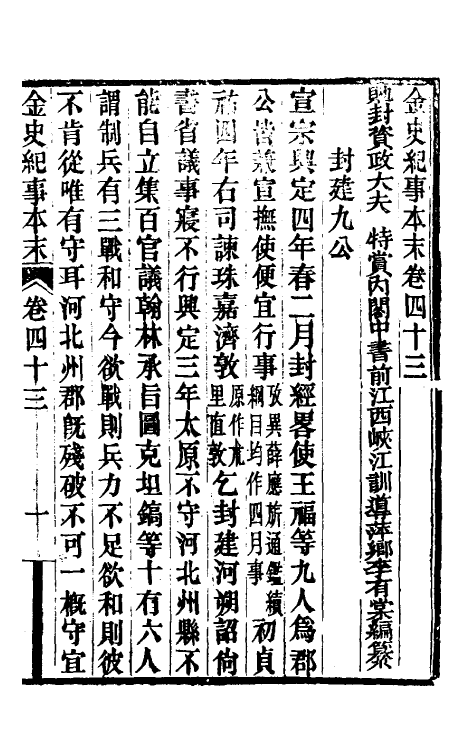 金史紀事本末卷四十三
敕封資政大夫 特賞內閣中書前江西峽江訓導萍鄉李有棠編纂
封建九公
宣宗興定四年春二月封經畧使王福等九人爲郡
公皆兼宣撫使便宜行事攷異薛應旂通鑑續綱目均作四月事初貞
祐四年右司諫珠嘉濟敦原作朮里直敦乞封建河朔詔尙
書省議事寢不行興定三年太原不守河北州縣不
能自立集百官議翰林承旨圖克坦鎬等十有六人
謂制兵有三戰和守今欲戰則兵力不足欲和則彼
不肯從唯有守耳河北州郡旣殘破不可一概守宜
金史紀事本末 卷四十三 一